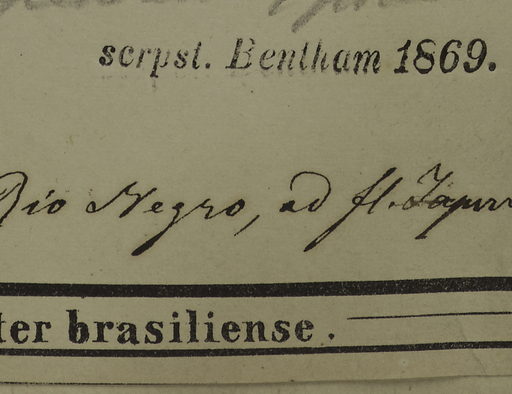 scrpst. Bentham 1869.
Rio Negro, ad fl.
ter brasiliense.